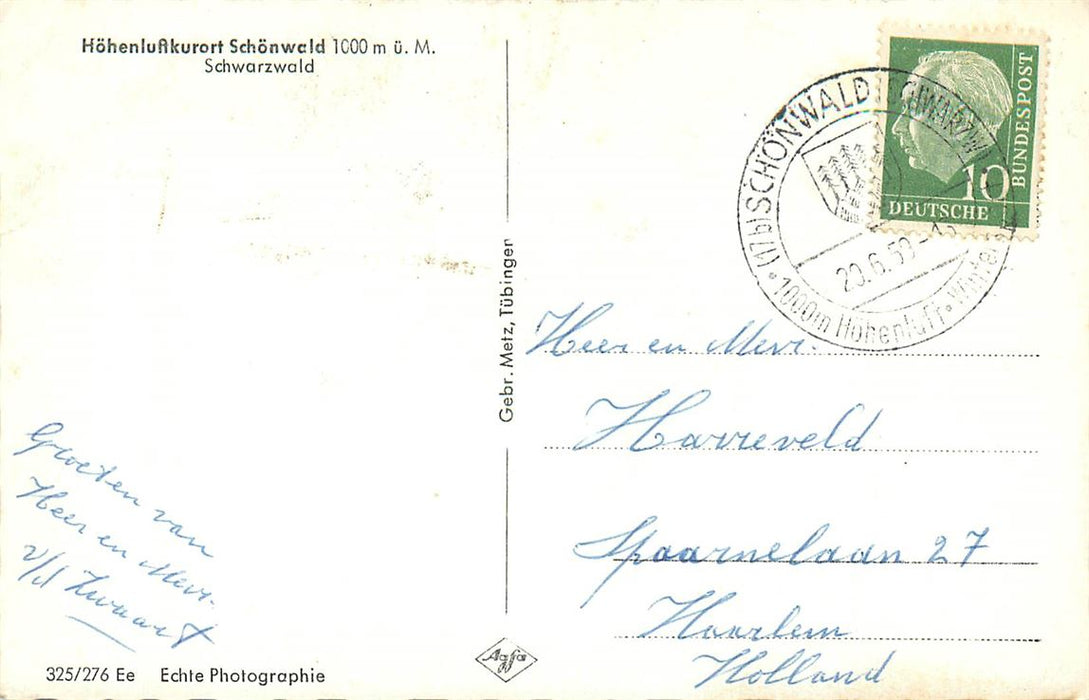 Höhenluftkurort Schönwald 1000 m ü. M.
Schwarzwald
Groeten van
Heer en Mevr.
v/d Zwaart
325/276 Ee Echte Photographie
Gebr. Metz, Tübingen
Agfa
(17b) SCHÖNWALD SCHWARZW
20.6.59-15
1000m Höhenluft • Winter
BUNDESPOST
10
DEUTSCHE
Heer en Mevr.
Harreveld
Spaarnelaan 27
Haarlem
Holland